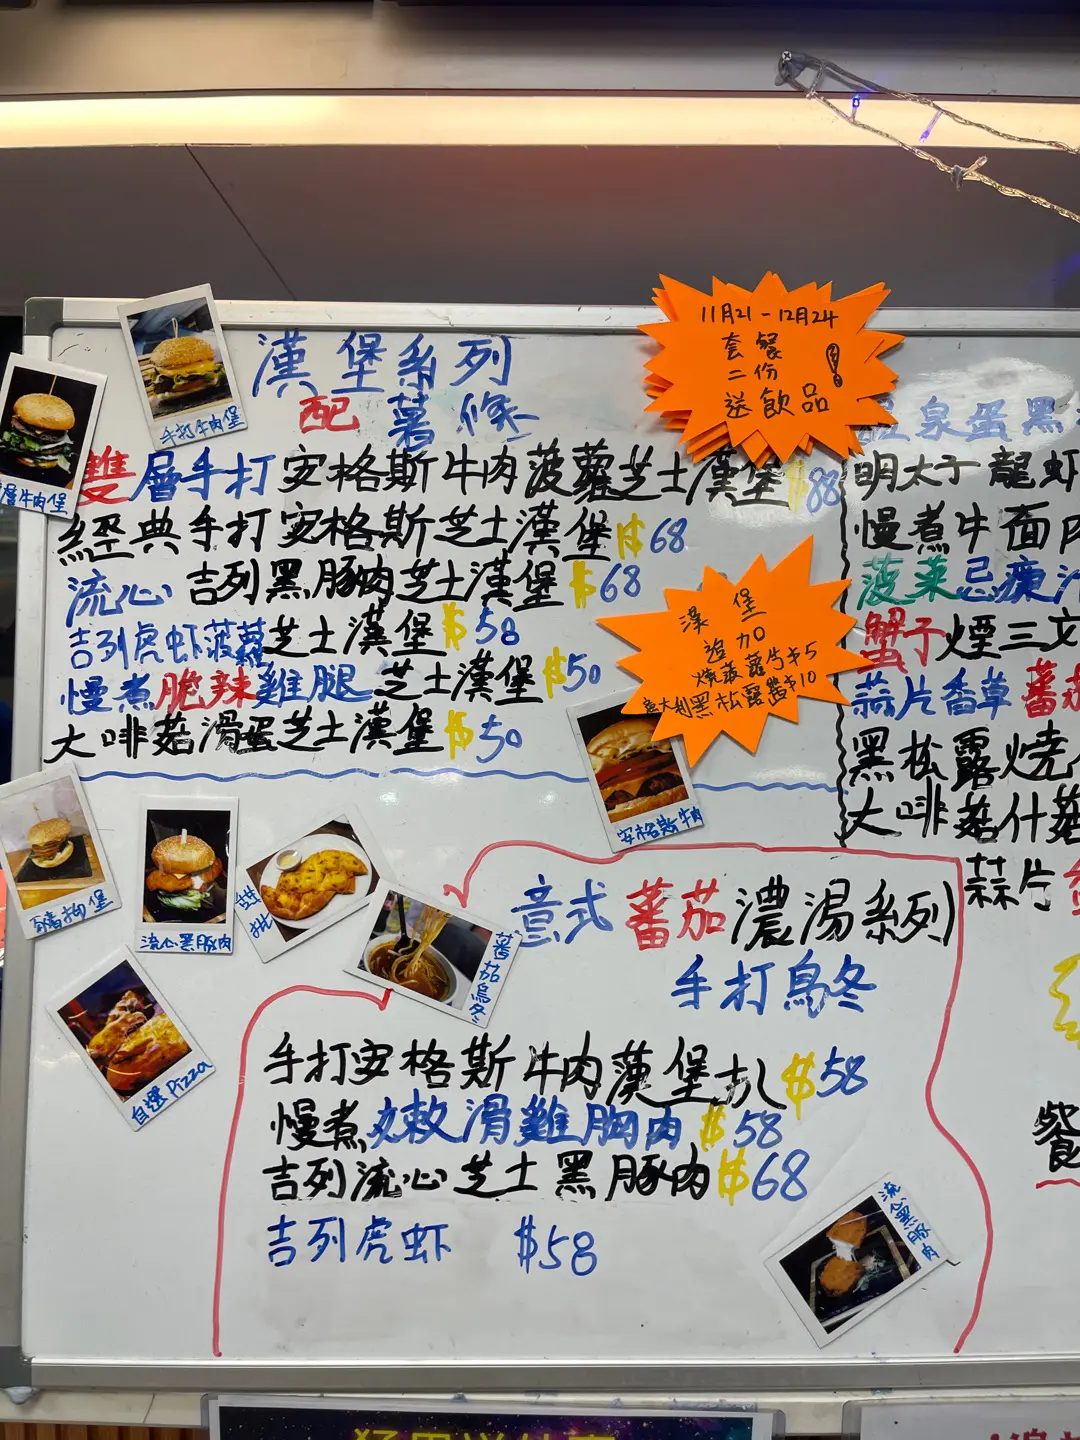 漢堡系列
配薯條
雙層手打安格斯牛肉菠蘿芝士漢堡$88
經典手打安格斯芝士漢堡$68
流心吉列黑豚肉芝士漢堡$68
吉列虎蝦菠蘿芝士漢堡$58
慢煮脆辣雞腿芝士漢堡$50
大啡菇滑蛋芝士漢堡$50
11月21-12月24
套餐
二份
送飲品!
漢堡
追加
燒菠蘿片$5
意大利黑松露醬$10
手打牛肉堡
層牛肉堡
安格斯牛肉
豬柳堡
流心黑豚肉
番茄烏冬
自選Pizza
意式蕃茄濃湯系列
手打烏冬
手打安格斯牛肉漢堡扒$58
慢煮嫩滑雞胸肉$58
吉列流心芝士黑豚肉$68
吉列虎蝦 $58
流心黑豚肉
泉蛋黑
明太子龍蝦
慢煮牛面肉
菠菜忌廉
蟹子煙三文
蒜片香草蕃茄
黑松露燒
大啡菇什菇
蒜片